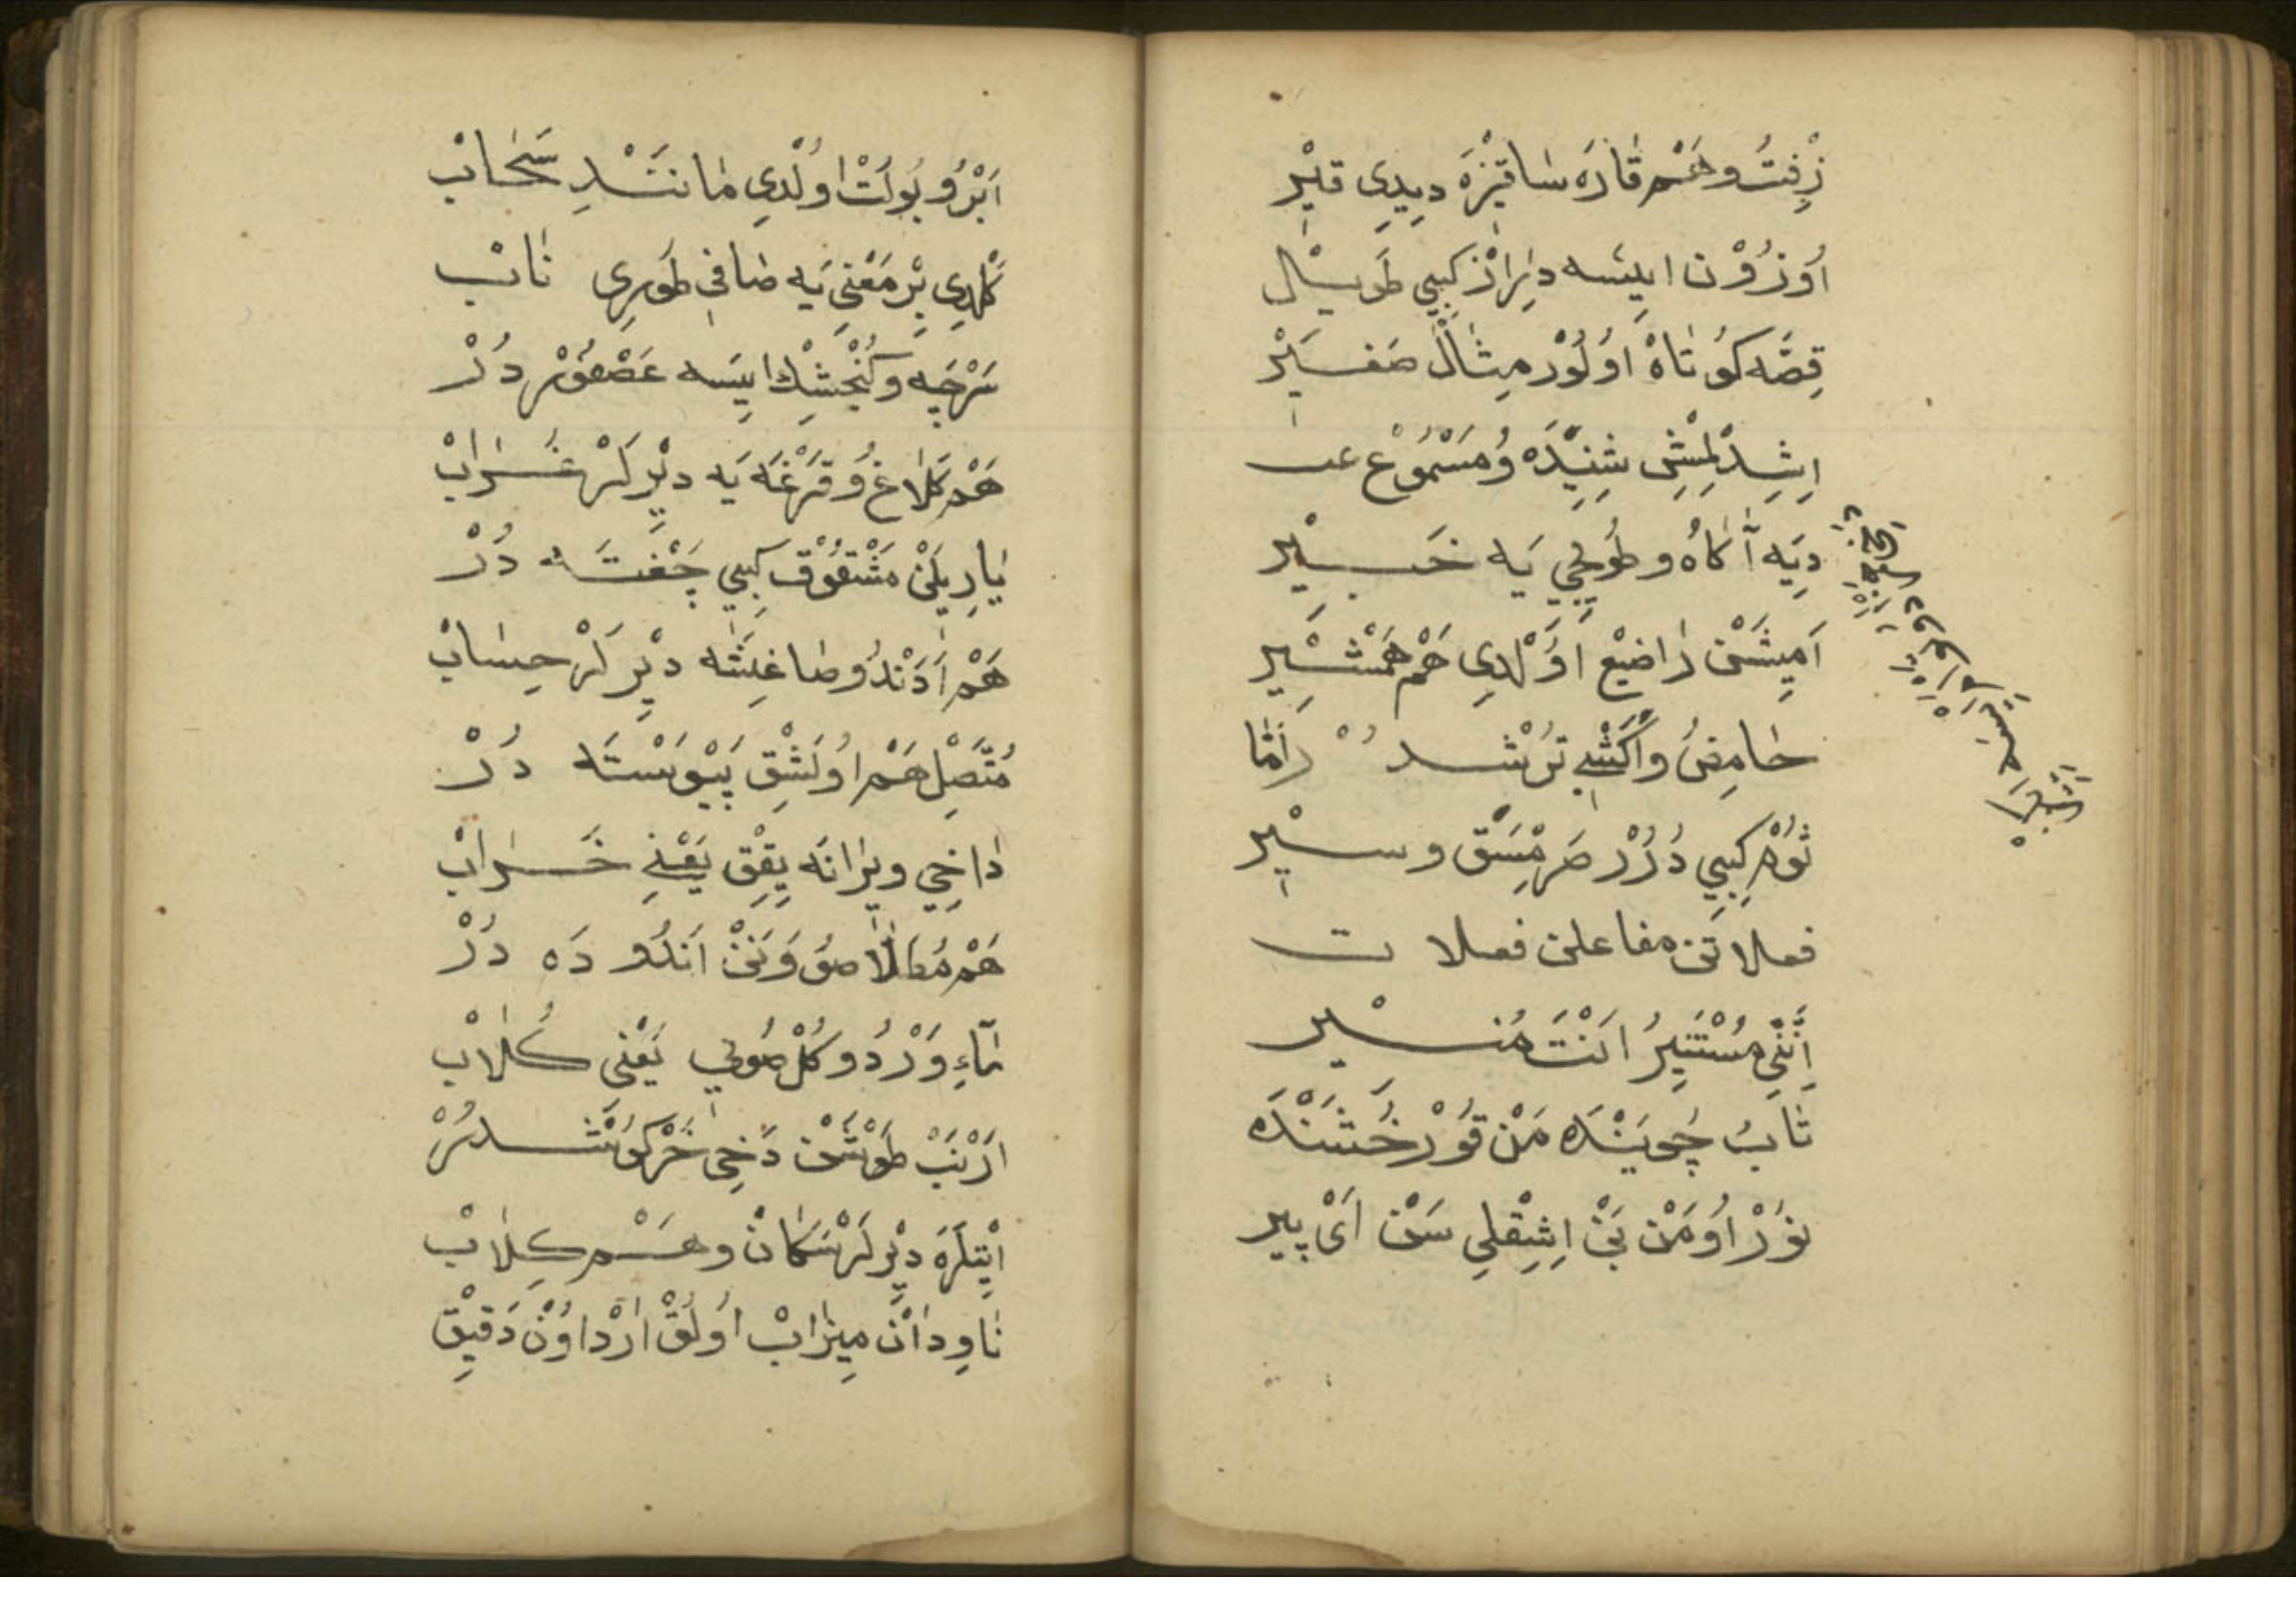 زِفْتُ وهَمْ قَارَه سَاقِزَه دِيدِي قِيْر
اُوزُوْن اِيسَه دِرَازْ كِبِي طَوِيْل
قِصَّه كُوتَاهْ اُولُوْر مِثَالْ صَغِيْر
اِشِدِلْمِشْ شِنِيْدَه وُ مَسْمُوْع
دِيَه آكَاهُ و طُويُجِي يَه خَبِيْر
اَمِيشَنْ رَاضِعْ اُوْلْدِي هَمْ هَمْشِيْر
حَامِضُ وَاكْشِي تُرْشْدُرْ اَمَّا
ثُوْم كِبِي دُرُرْ صَرِمْسَقْ و سِيْر
فعلاتن مفاعلن فعلات
اِنَّنِي مُسْتَنِيرُ اَنْتَ مُنِيْر
تَابْ جُويَنْدَه مَنْ تُو رَخْشَنْدَه
نُوْرْ اُومَنْ بَنْ اِشِقْلِي سَنْ اَيْ پِير
اَبْرُ و بُولُتْ اُولْدِي مَانَنْدِ سَحَابْ
كَلْدِي بِرْ مَعْنِي يَه صَافِي طُورِي نَابْ
سَرْچَه و كُنْجِشْك اِيسَه عَصْفُوْر دُرْ
هَمْ كَلَاغُ و قَرْغَه يَه دِيْرلَرْ غُرَابْ
يَارِيلَنْ مَشْقُوْق كِبِي چَفْتَه دُرْ
هَمْ اَدَنْدُ و صَاغِشَه دِيْرلَرْ حِسَابْ
مُتَّصِلْ هَمْ اُولَشِقْ پَيْوَسْتَه دُرْ
دَاخِي وِيرَانَه يِقِقْ يَعْنِي خَرَابْ
هَمْ مُطَلَّا صُووَنَنْ اَنْدُودَه دُرْ
مَاءِ وَرْدُ و كُلْ صُويِي يَعْنِي كُلَابْ
اَرْنَبْ طَوْشَنْ دَخِي خَرْكُوشْدُرُرْ
اِيْتِلَرَه دِيْرلَرْ سَكَانْ و هَمْ كِلَابْ
نَاوِدَانْ مِيزَابْ اُولُقْ اَرْدْ اُوُنْ دَقِيْقْ